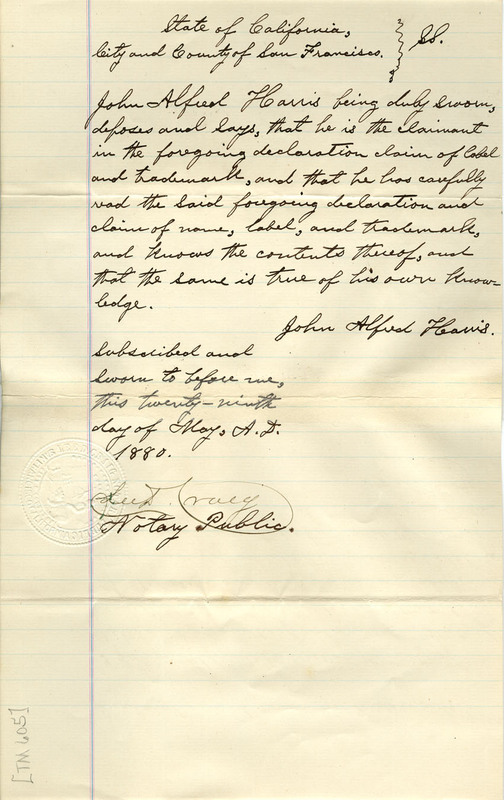 State of California,
City and County of San Francisco. } SS.
John Alfred Harris being duly sworn,
deposes and says, that he is the claimant
in the foregoing declaration claim of label
and trademark, and that he has carefully
read the said foregoing declaration and
claim of name, label, and trademark,
and knows the contents thereof, and
that the same is true of his own know-
ledge.
John Alfred Harris.
Subscribed and
sworn to before me,
this twenty-ninth
day of May, A.D.
1880.
Lee D. Craig
Notary Public.
[TM 605]